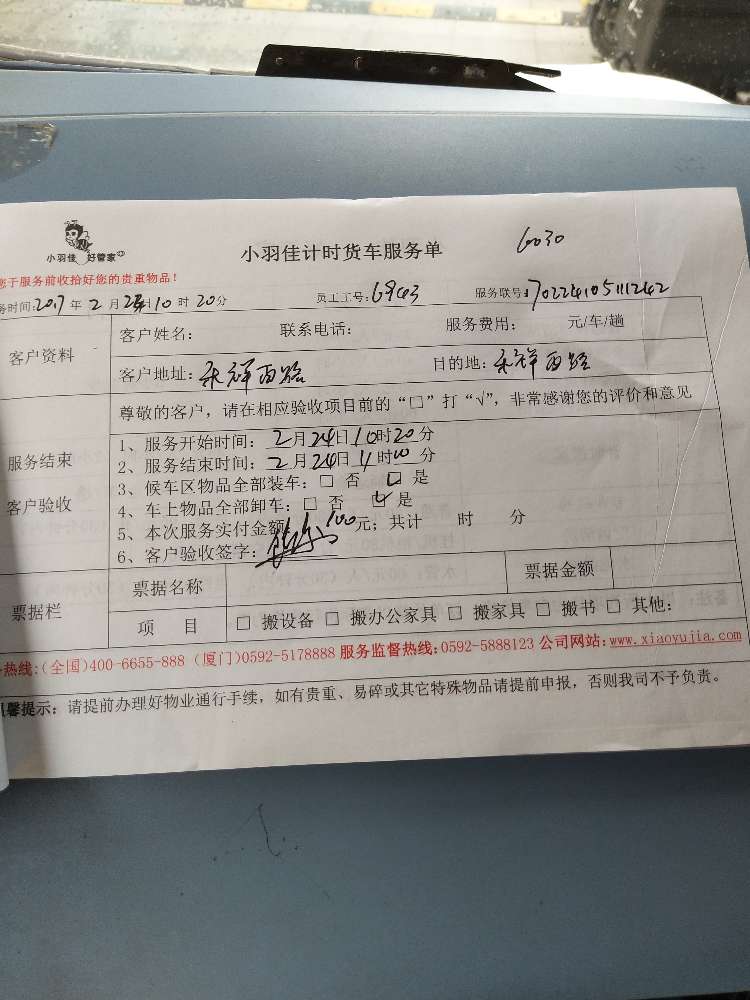 小羽佳 好管家
小羽佳计时货车服务单
6030
您于服务前收拾好您的贵重物品！
务时间:2017 年 2 月 24日10 时 20分 员工工号:6943 服务联号:70224105111242
客户资料
客户姓名: 联系电话: 服务费用: 元/车/趟
客户地址: 禾祥西路 目的地: 禾祥西路
尊敬的客户，请在相应验收项目前的“□”打“√”，非常感谢您的评价和意见
服务结束
客户验收
1、服务开始时间: 2月24日10时20分
2、服务结束时间: 2月24日11时10分
3、候车区物品全部装车: □ 否 ☑ 是
4、车上物品全部卸车: □ 否 ☑ 是
5、本次服务实付金额: 100元; 共计 时 分
6、客户验收签字:
票据栏
票据名称 票据金额
项 目 □ 搬设备 □ 搬办公家具 □ 搬家具 □ 搬书 □ 其他:
热线:(全国)400-6655-888 (厦门)0592-5178888 服务监督热线:0592-5888123 公司网站:www.xiaoyujia.com
温馨提示: 请提前办理好物业通行手续，如有贵重、易碎或其它特殊物品请提前申报，否则我司不予负责。